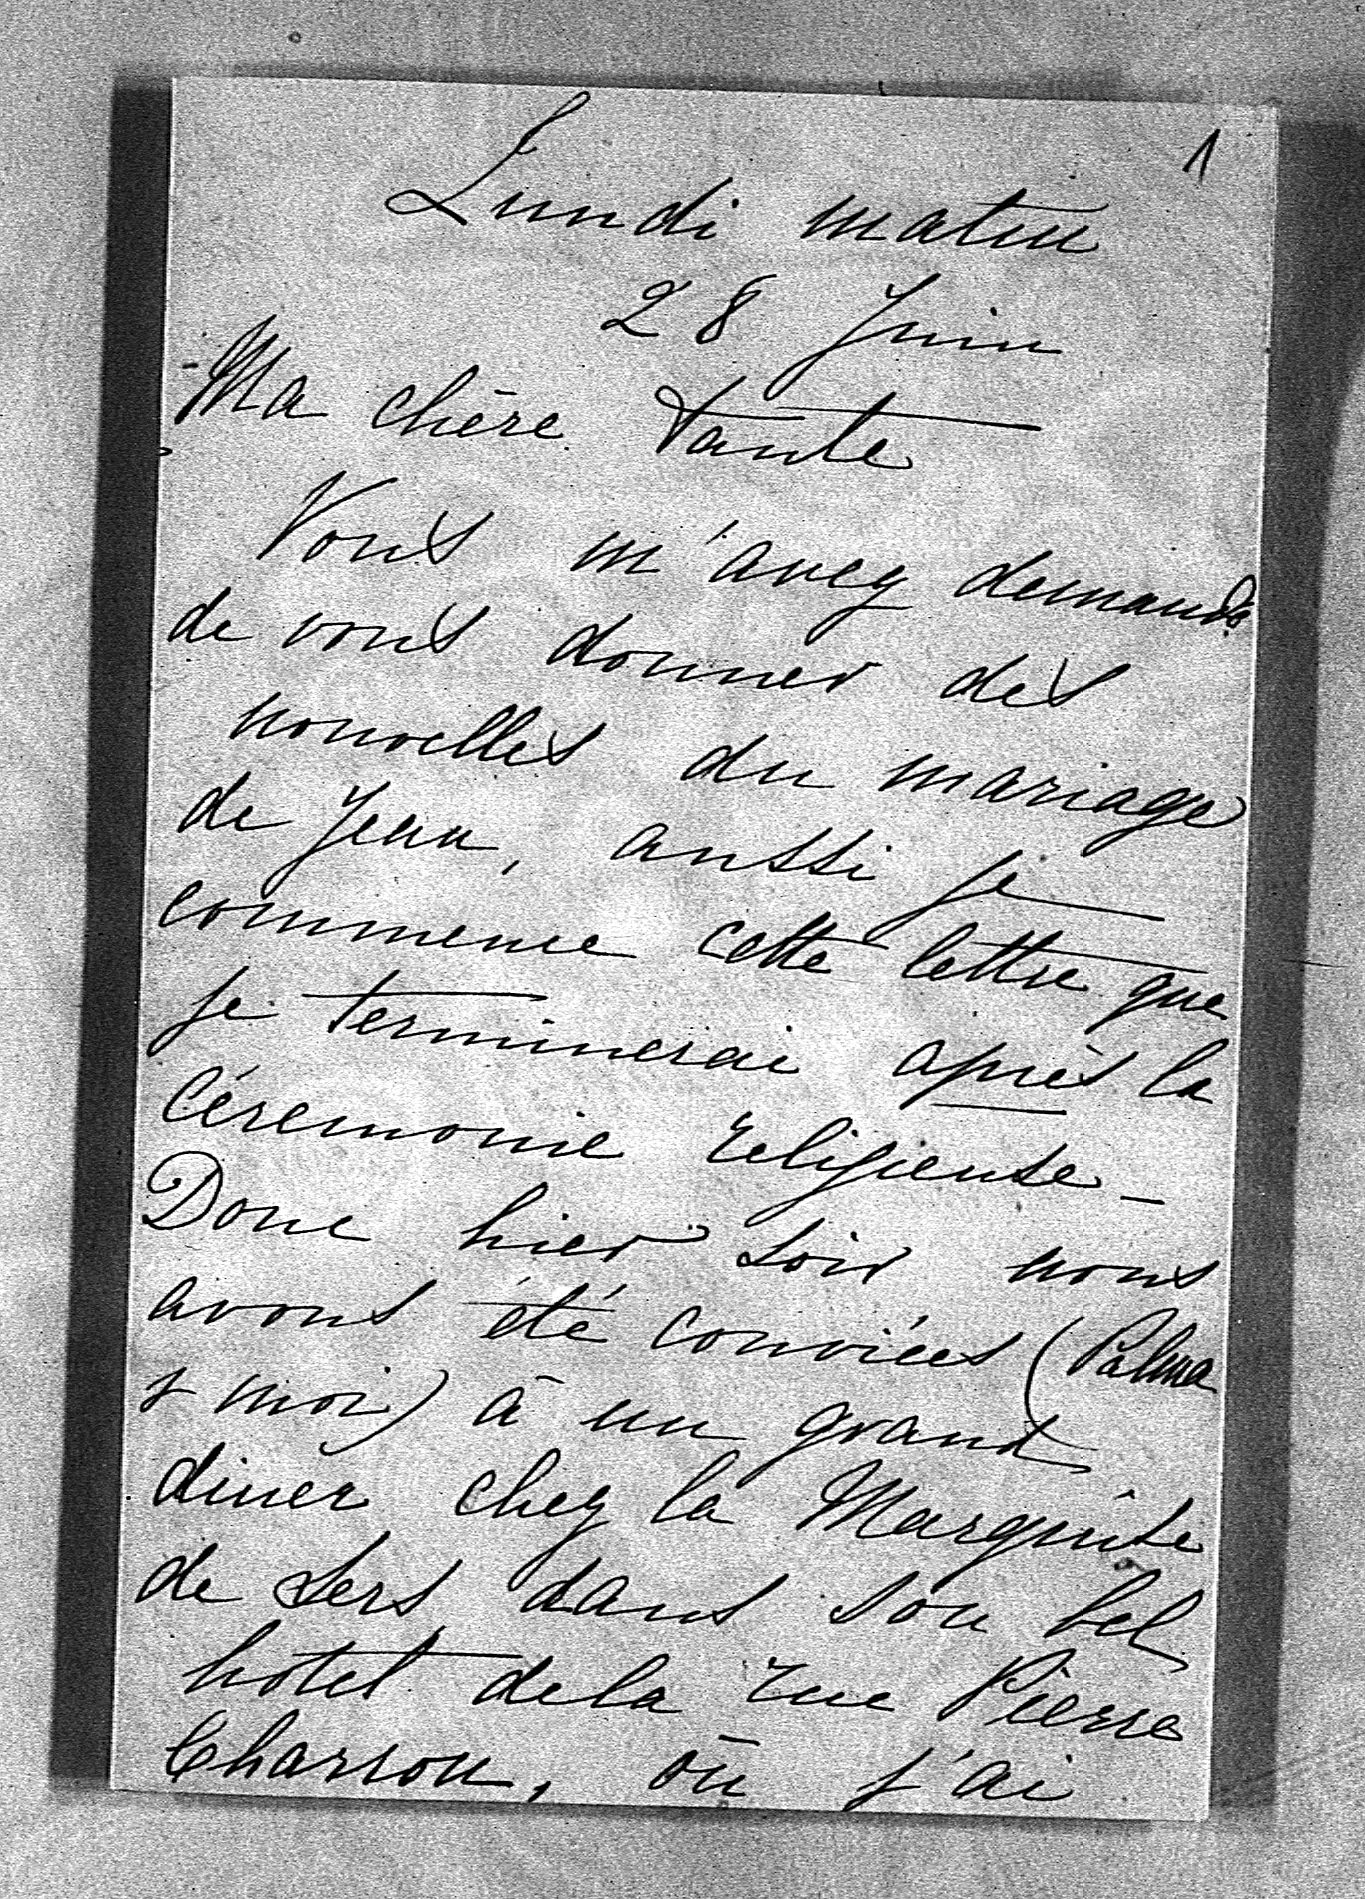 1
Lundi matin
28 Juin
Ma chère Tante
Vous m'avez demandé
de vous donner des
nouvelles du mariage
de Jean, aussi je
commence cette lettre que
je terminerai après la
Cérémonie religieuse _
Donc hier soir nous
avons été conviées (Palma
& moi) à un grand
diner chez la Marquise
de Sers dans son bel
hotel de la rue Pierre
Charron, où j'ai